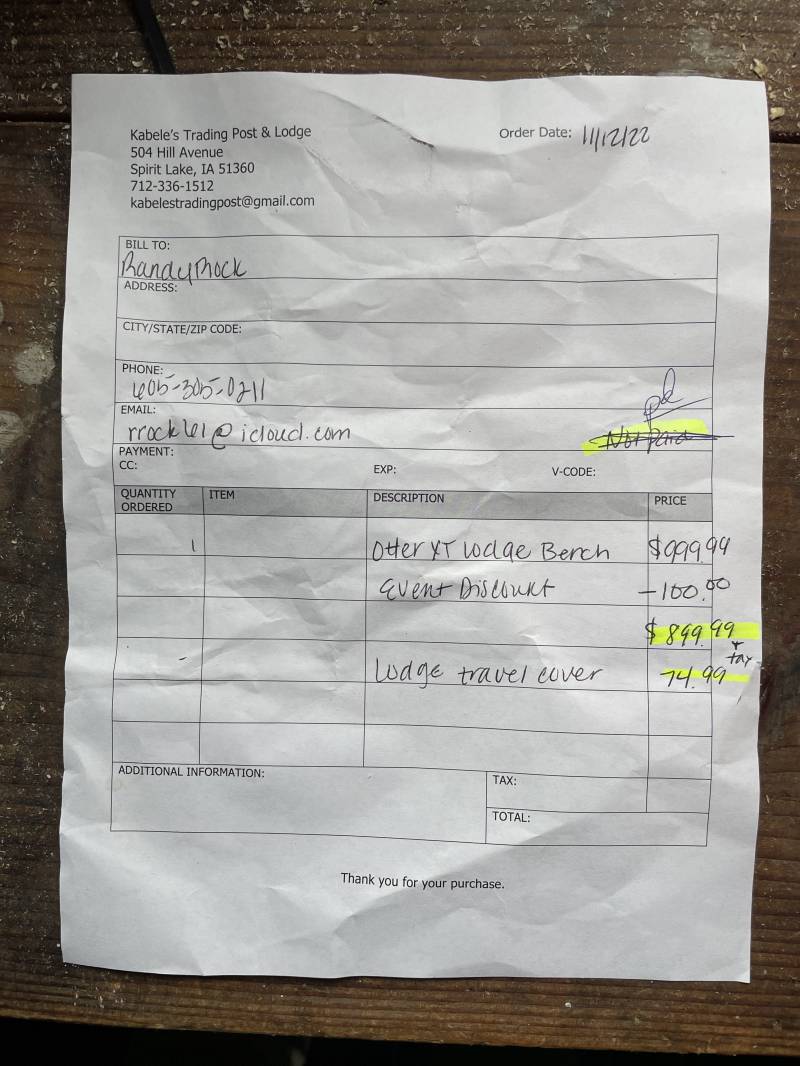 Kabele's Trading Post & Lodge
504 Hill Avenue
Spirit Lake, IA 51360
712-336-1512
kabelestradingpost@gmail.com
Order Date: 11/12/22
BILL TO:
Randy Rock
ADDRESS:
CITY/STATE/ZIP CODE:
PHONE:
605-305-0211
EMAIL:
rrock61@icloud.com
pd
Not Paid
PAYMENT:
CC: EXP: V-CODE:
QUANTITY ORDERED ITEM DESCRIPTION PRICE
1 Otter XT Lodge Bench $999.99
Event Discount -100.00
$899.99
+ tax
- Lodge travel cover 74.99
ADDITIONAL INFORMATION:
TAX:
TOTAL:
Thank you for your purchase.